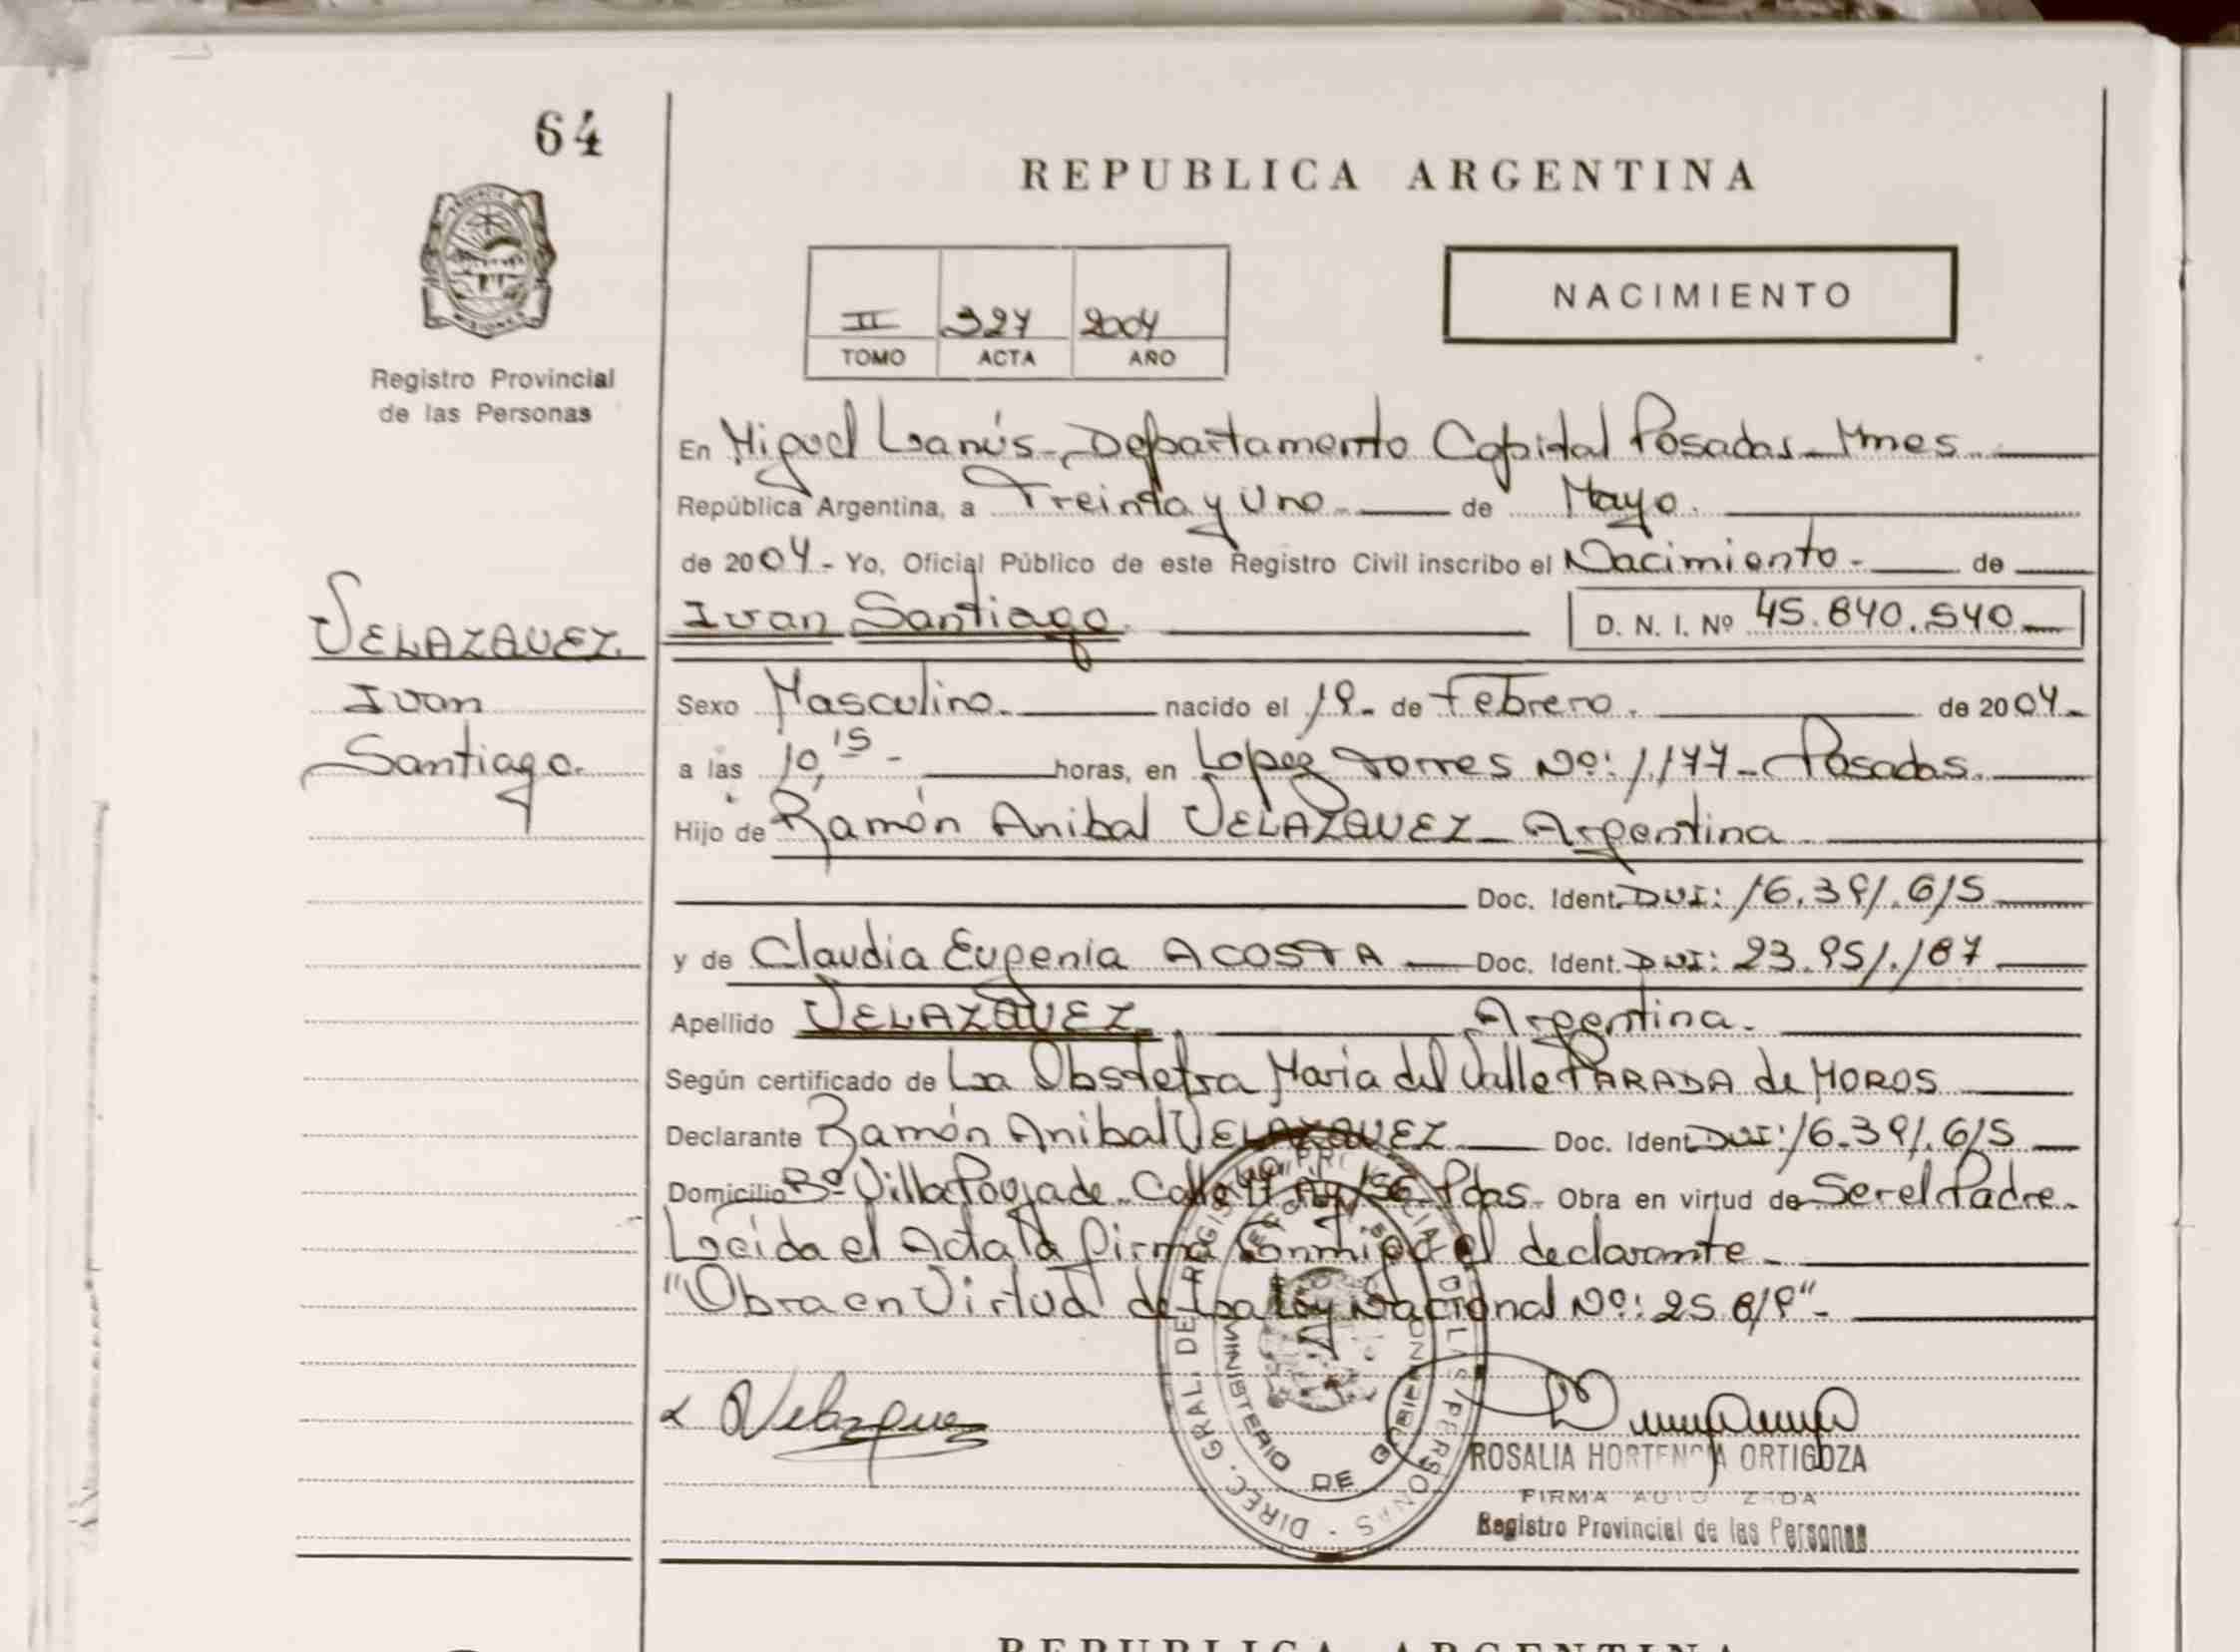 64
REPUBLICA ARGENTINA
PROVINCIA DE MISIONES
Registro Provincial
de las Personas
II 327 2004
TOMO ACTA AÑO
NACIMIENTO
En Miguel Lanús - Departamento Capital Posadas - Mnes.
República Argentina, a Treinta y Uno - de Mayo.
de 2004 - Yo, Oficial Público de este Registro Civil inscribo el Nacimiento - de
Ivan Santiago. D. N. I. Nº 45.840.540
VELAZQUEZ.
Ivan
Santiago.
Sexo Masculino. nacido el 19 - de Febrero. de 2004 -
a las 10,15 - horas, en Lopez Torres Nº: 1.177 - Posadas.
Hijo de Ramón Anibal VELAZQUEZ - Argentina.
Doc. Ident. DNI: 16.391.615
y de Claudia Eugenia ACOSTA Doc. Ident. DNI: 23.951.187
Apellido VELAZQUEZ. Argentina.
Según certificado de La Obstetra Maria del Valle PARADA de MOROS
Declarante Ramón Anibal VELAZQUEZ Doc. Ident. DNI: 16.391.615
Domicilio Bº Villa Poujade - Calle Pdas - Obra en virtud de Ser el Padre -
Leida el Acta la firma Conmigo el declarante -
"Obra en Virtud de La Ley Nacional Nº: 25.819" -
Velazquez
DIREC. GRAL. DEL REGISTRO PROVINCIAL DE LAS PERSONAS
MINISTERIO DE GOBIERNO
ROSALIA HORTENCIA ORTIGOZA
FIRMA AUTORIZADA
Registro Provincial de las Personas
REPUBLICA ARGENTINA